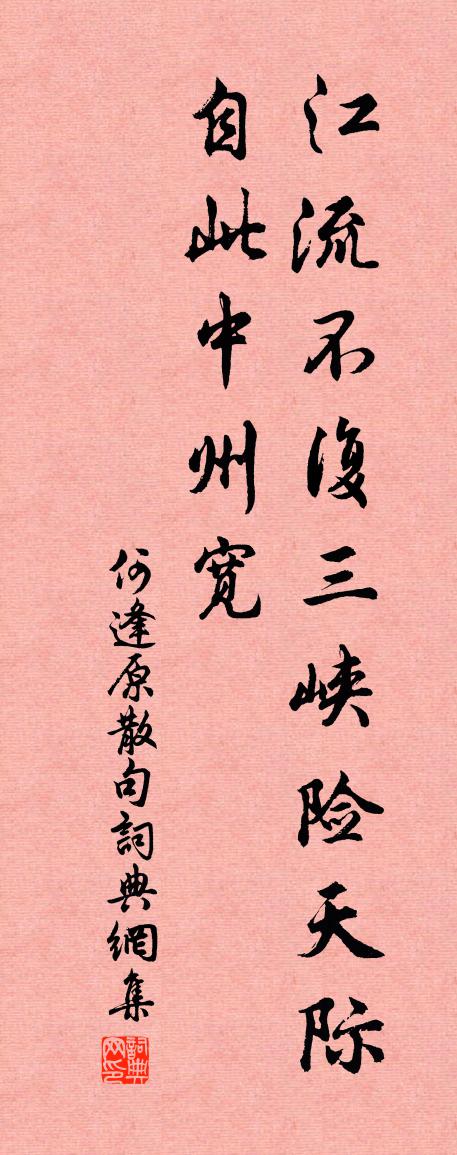 江流不復三峡险天际
自此中州寛
何逢原散句詞典網集
詞典网印